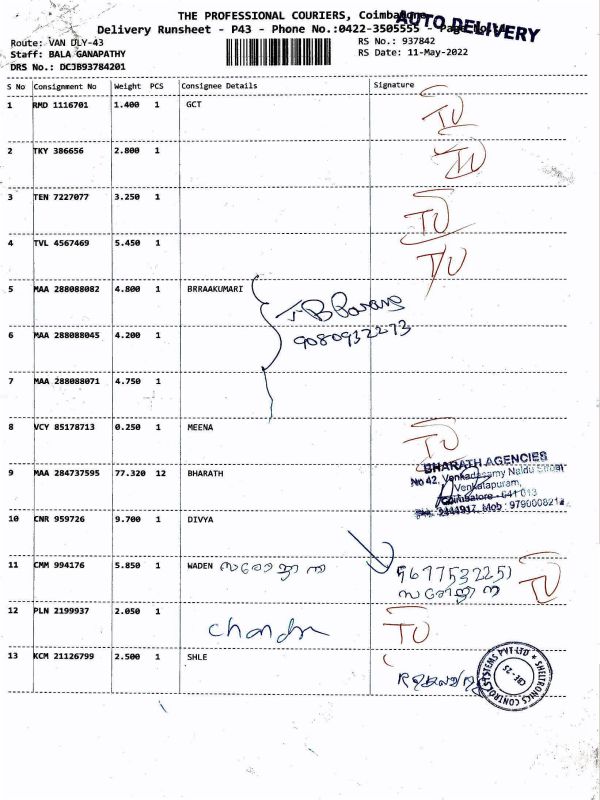 THE PROFESSIONAL COURIERS, Coimbatore
AUTO DELIVERY
Delivery Runsheet - P43 - Phone No.:0422-3505555 - Page No.
Route: VAN DLY-43
RS No.: 937842
Staff: BALA GANAPATHY
RS Date: 11-May-2022
DRS No.: DCJB93784201
S No Consignment No Weight PCS Consignee Details Signature
1 RMD 1116701 1.400 1 GCT TU
2 TKY 386656 2.800 1 TU
3 TEN 7227077 3.250 1 TU
4 TVL 4567469 5.450 1 TU
5 MAA 288088082 4.800 1 BRRAAKUMARI
9080932273
6 MAA 288088045 4.200 1
7 MAA 288088071 4.750 1
8 VCY 85178713 0.250 1 MEENA TU
BHARATH AGENCIES
9 MAA 284737595 77.320 12 BHARATH
No 42, Venkadasamy Naidu Street
Venkatapuram,
Coimbatore - 641 013
2444917, Mob : 9790008212
10 CNR 959726 9.700 1 DIVYA
11 CMM 994176 5.850 1 WADEN சரோஜா TU
12 PLN 2199937 2.050 1 TU
Chandra
13 KCM 21126799 2.500 1 SHLE
SHELTRONICS CONTROL SYSTEMS PVT LTD
CBE - 25